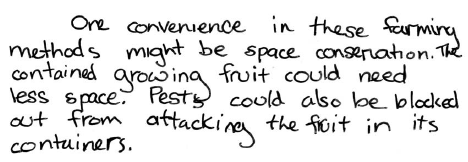 One convenience in these farming
methods might be space conservation. The
contained growing fruit could need
less space. Pests could also be blocked
out from attacking the fruit in its
containers.